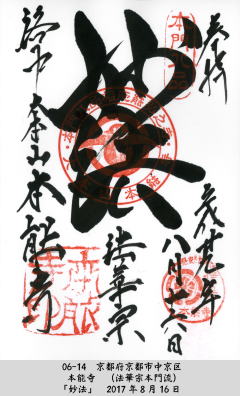 奉拝
妙法
法華宗
洛中 大本山 本能寺
八月十六日
06-14　京都府京都市中京区
本能寺　（法華宗本門流）
「妙法」　2017年8月16日